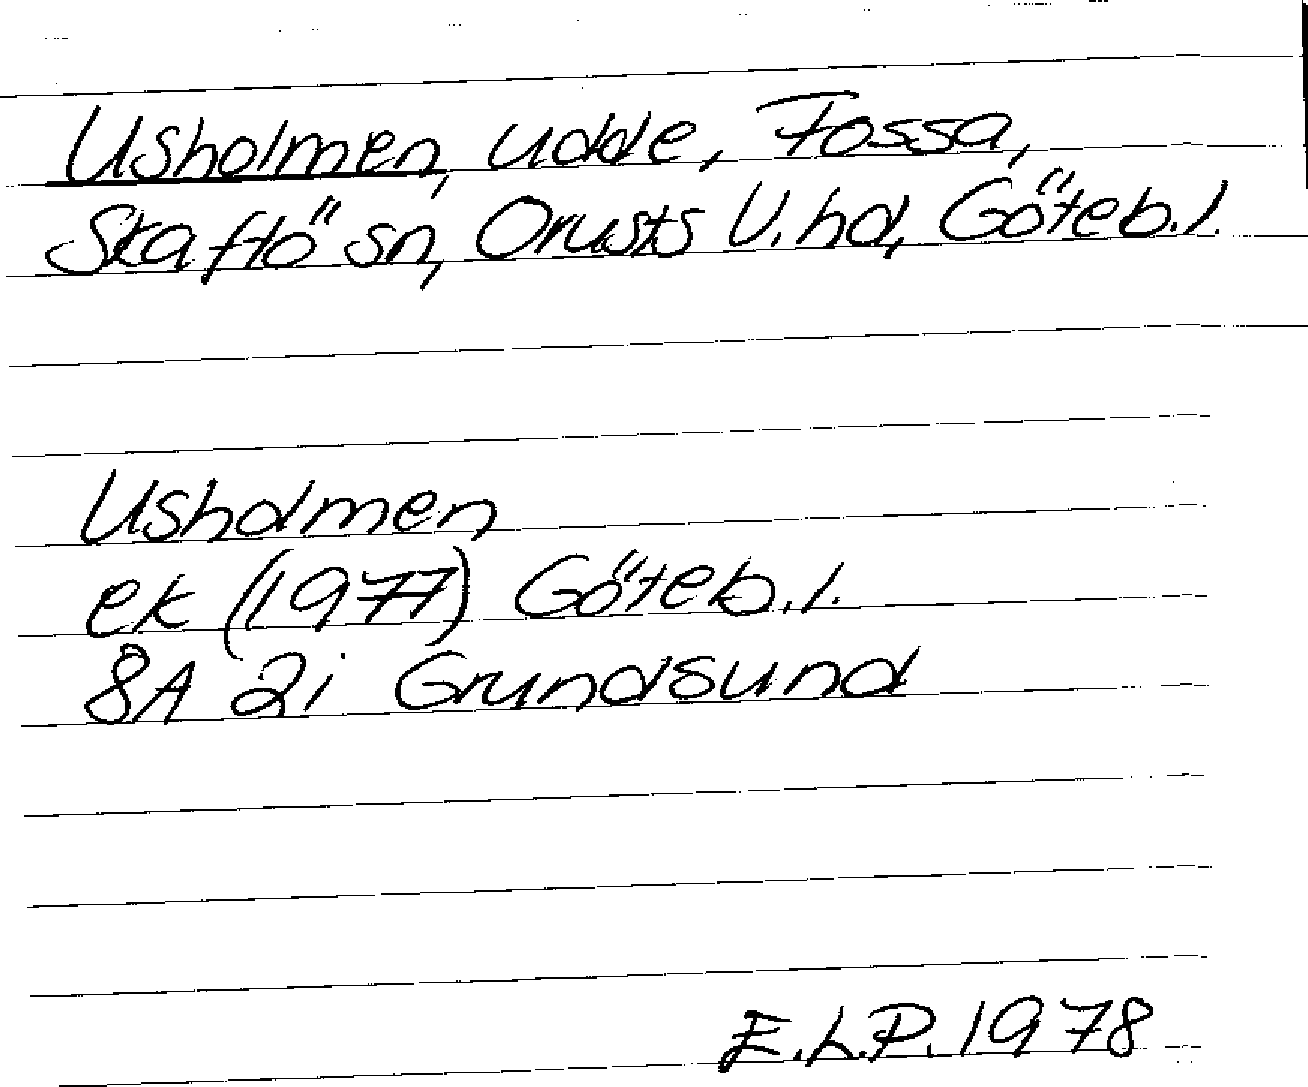 Usholmen, udde, Fossa,
Skaftö sn, Orusts V. hd, Göteb. l.
Usholmen
ek (1977) Göteb. l.
8A 2i Grundsund
E.L.P. 1978